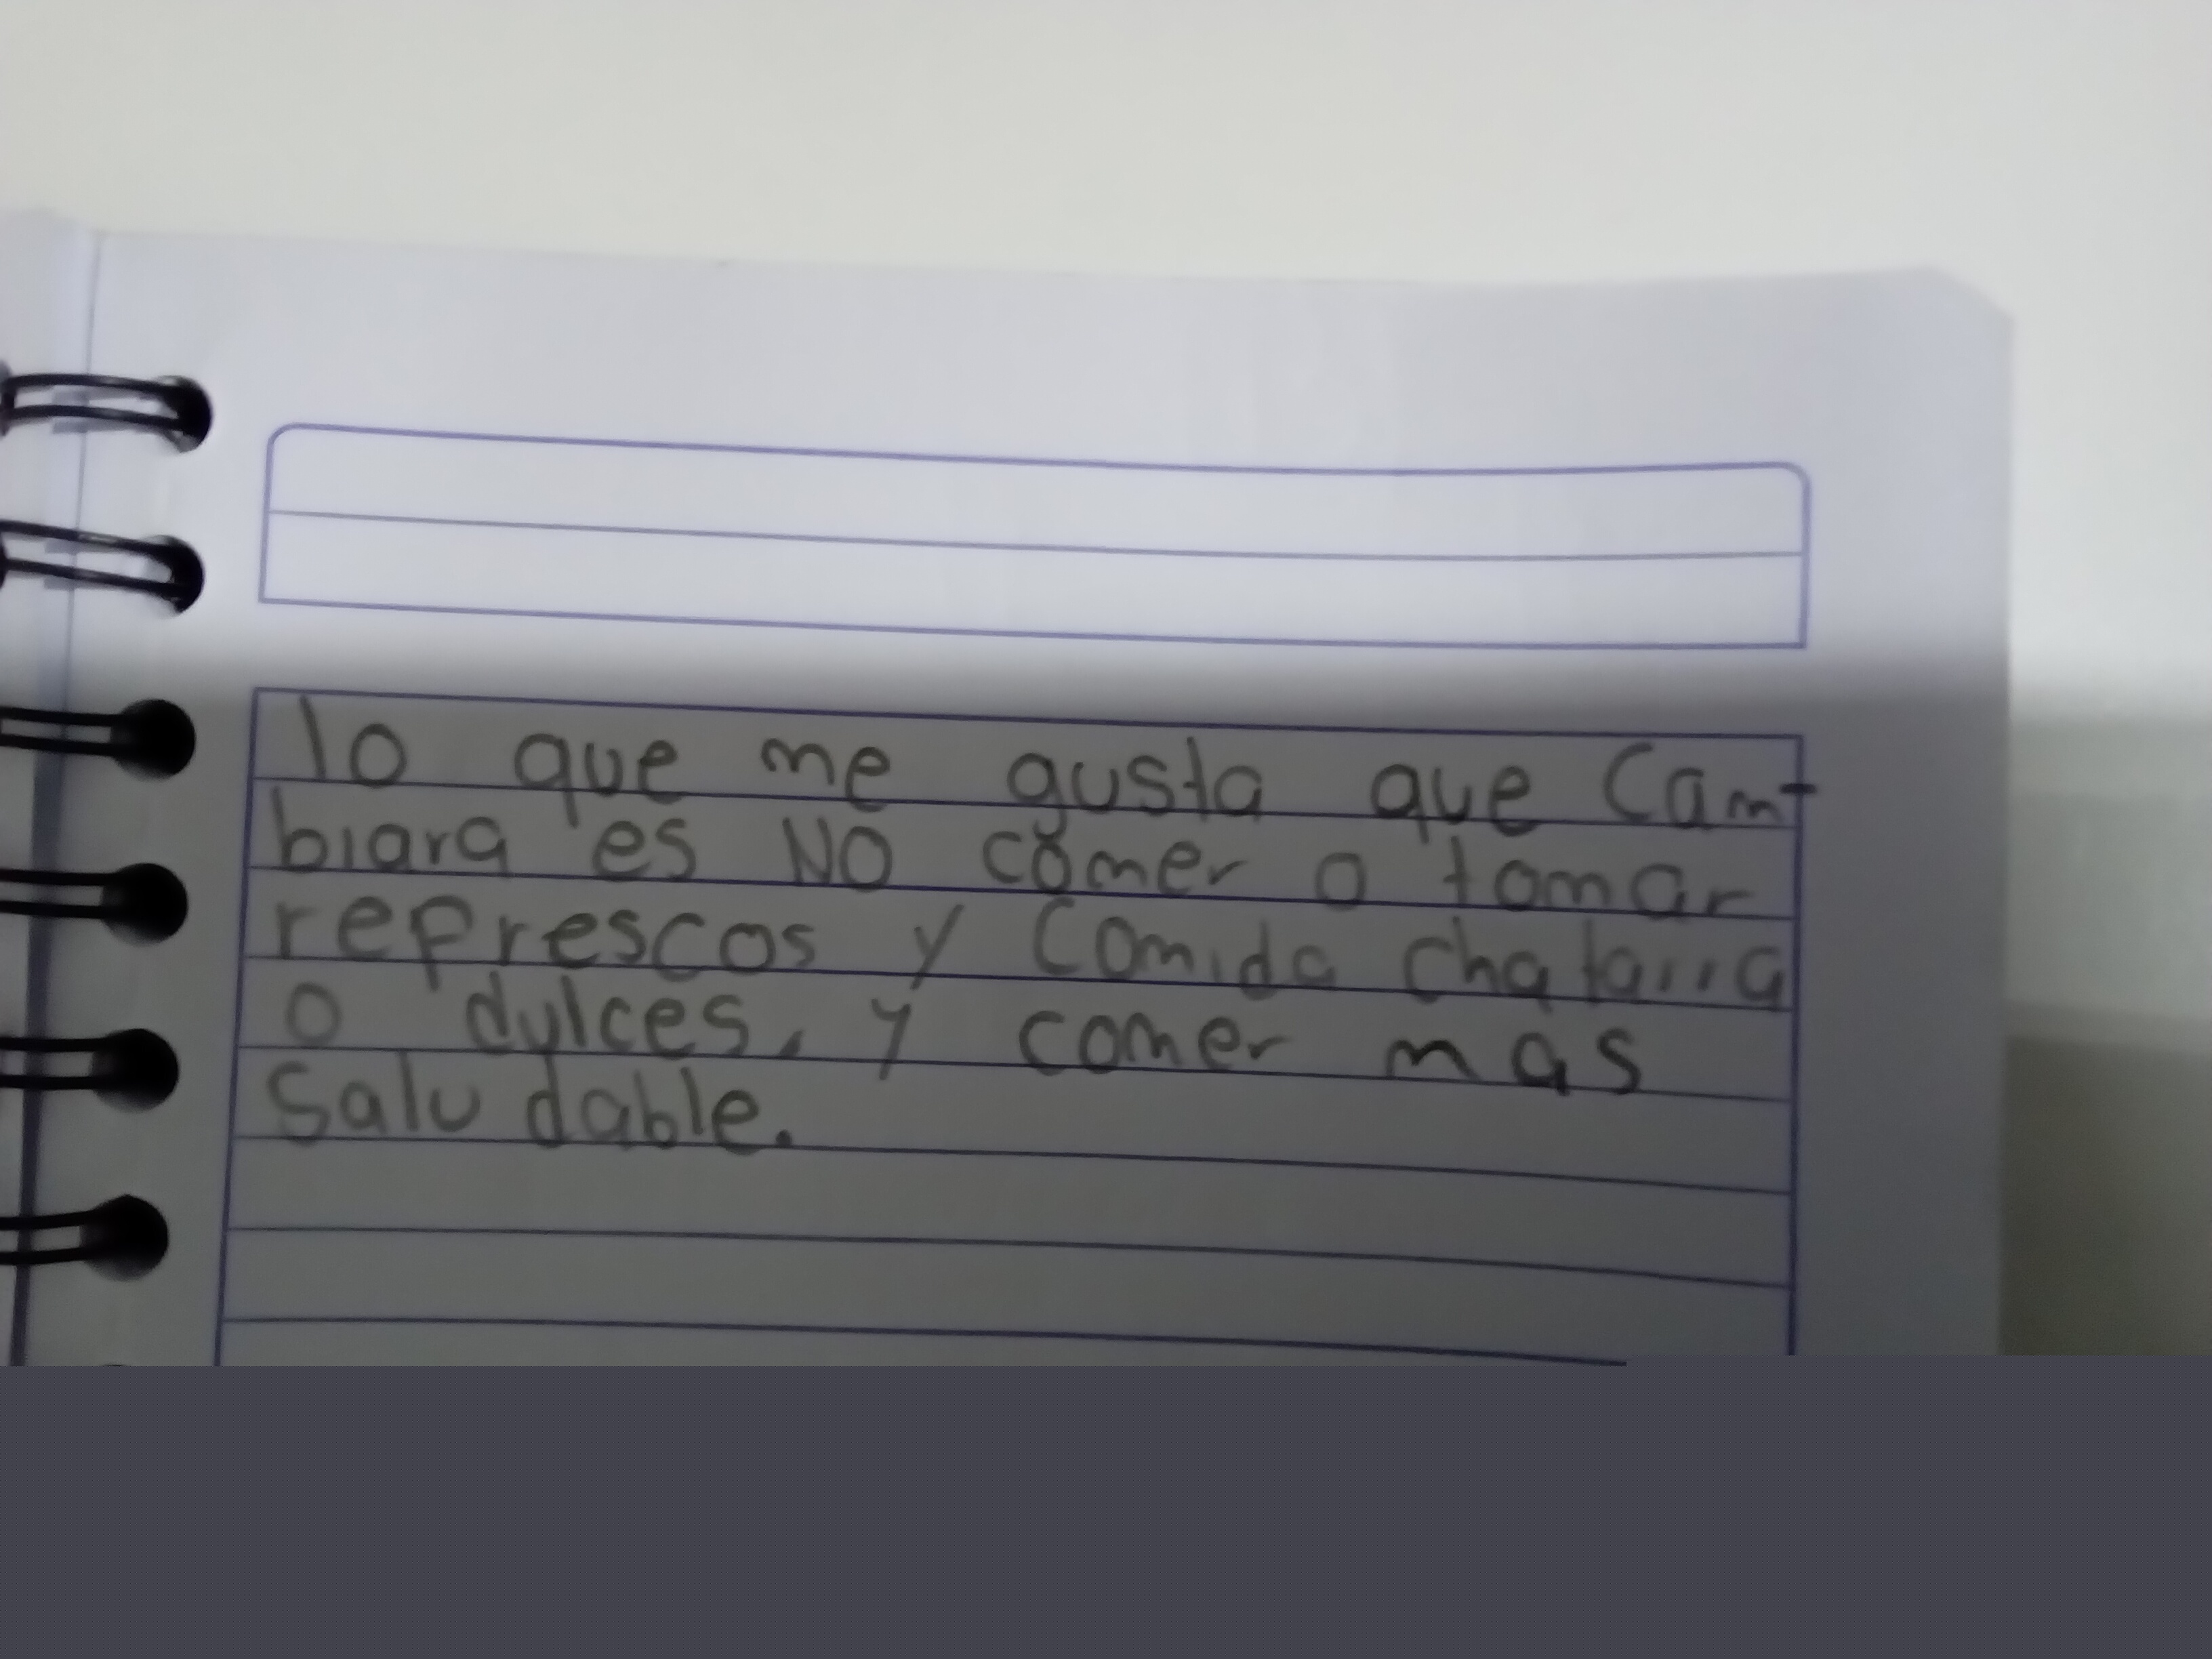 lo que me gusta que Cam-
biara es NO comer o tomar
refrescos y comida chatarra
o dulces, y comer mas
Saludable.